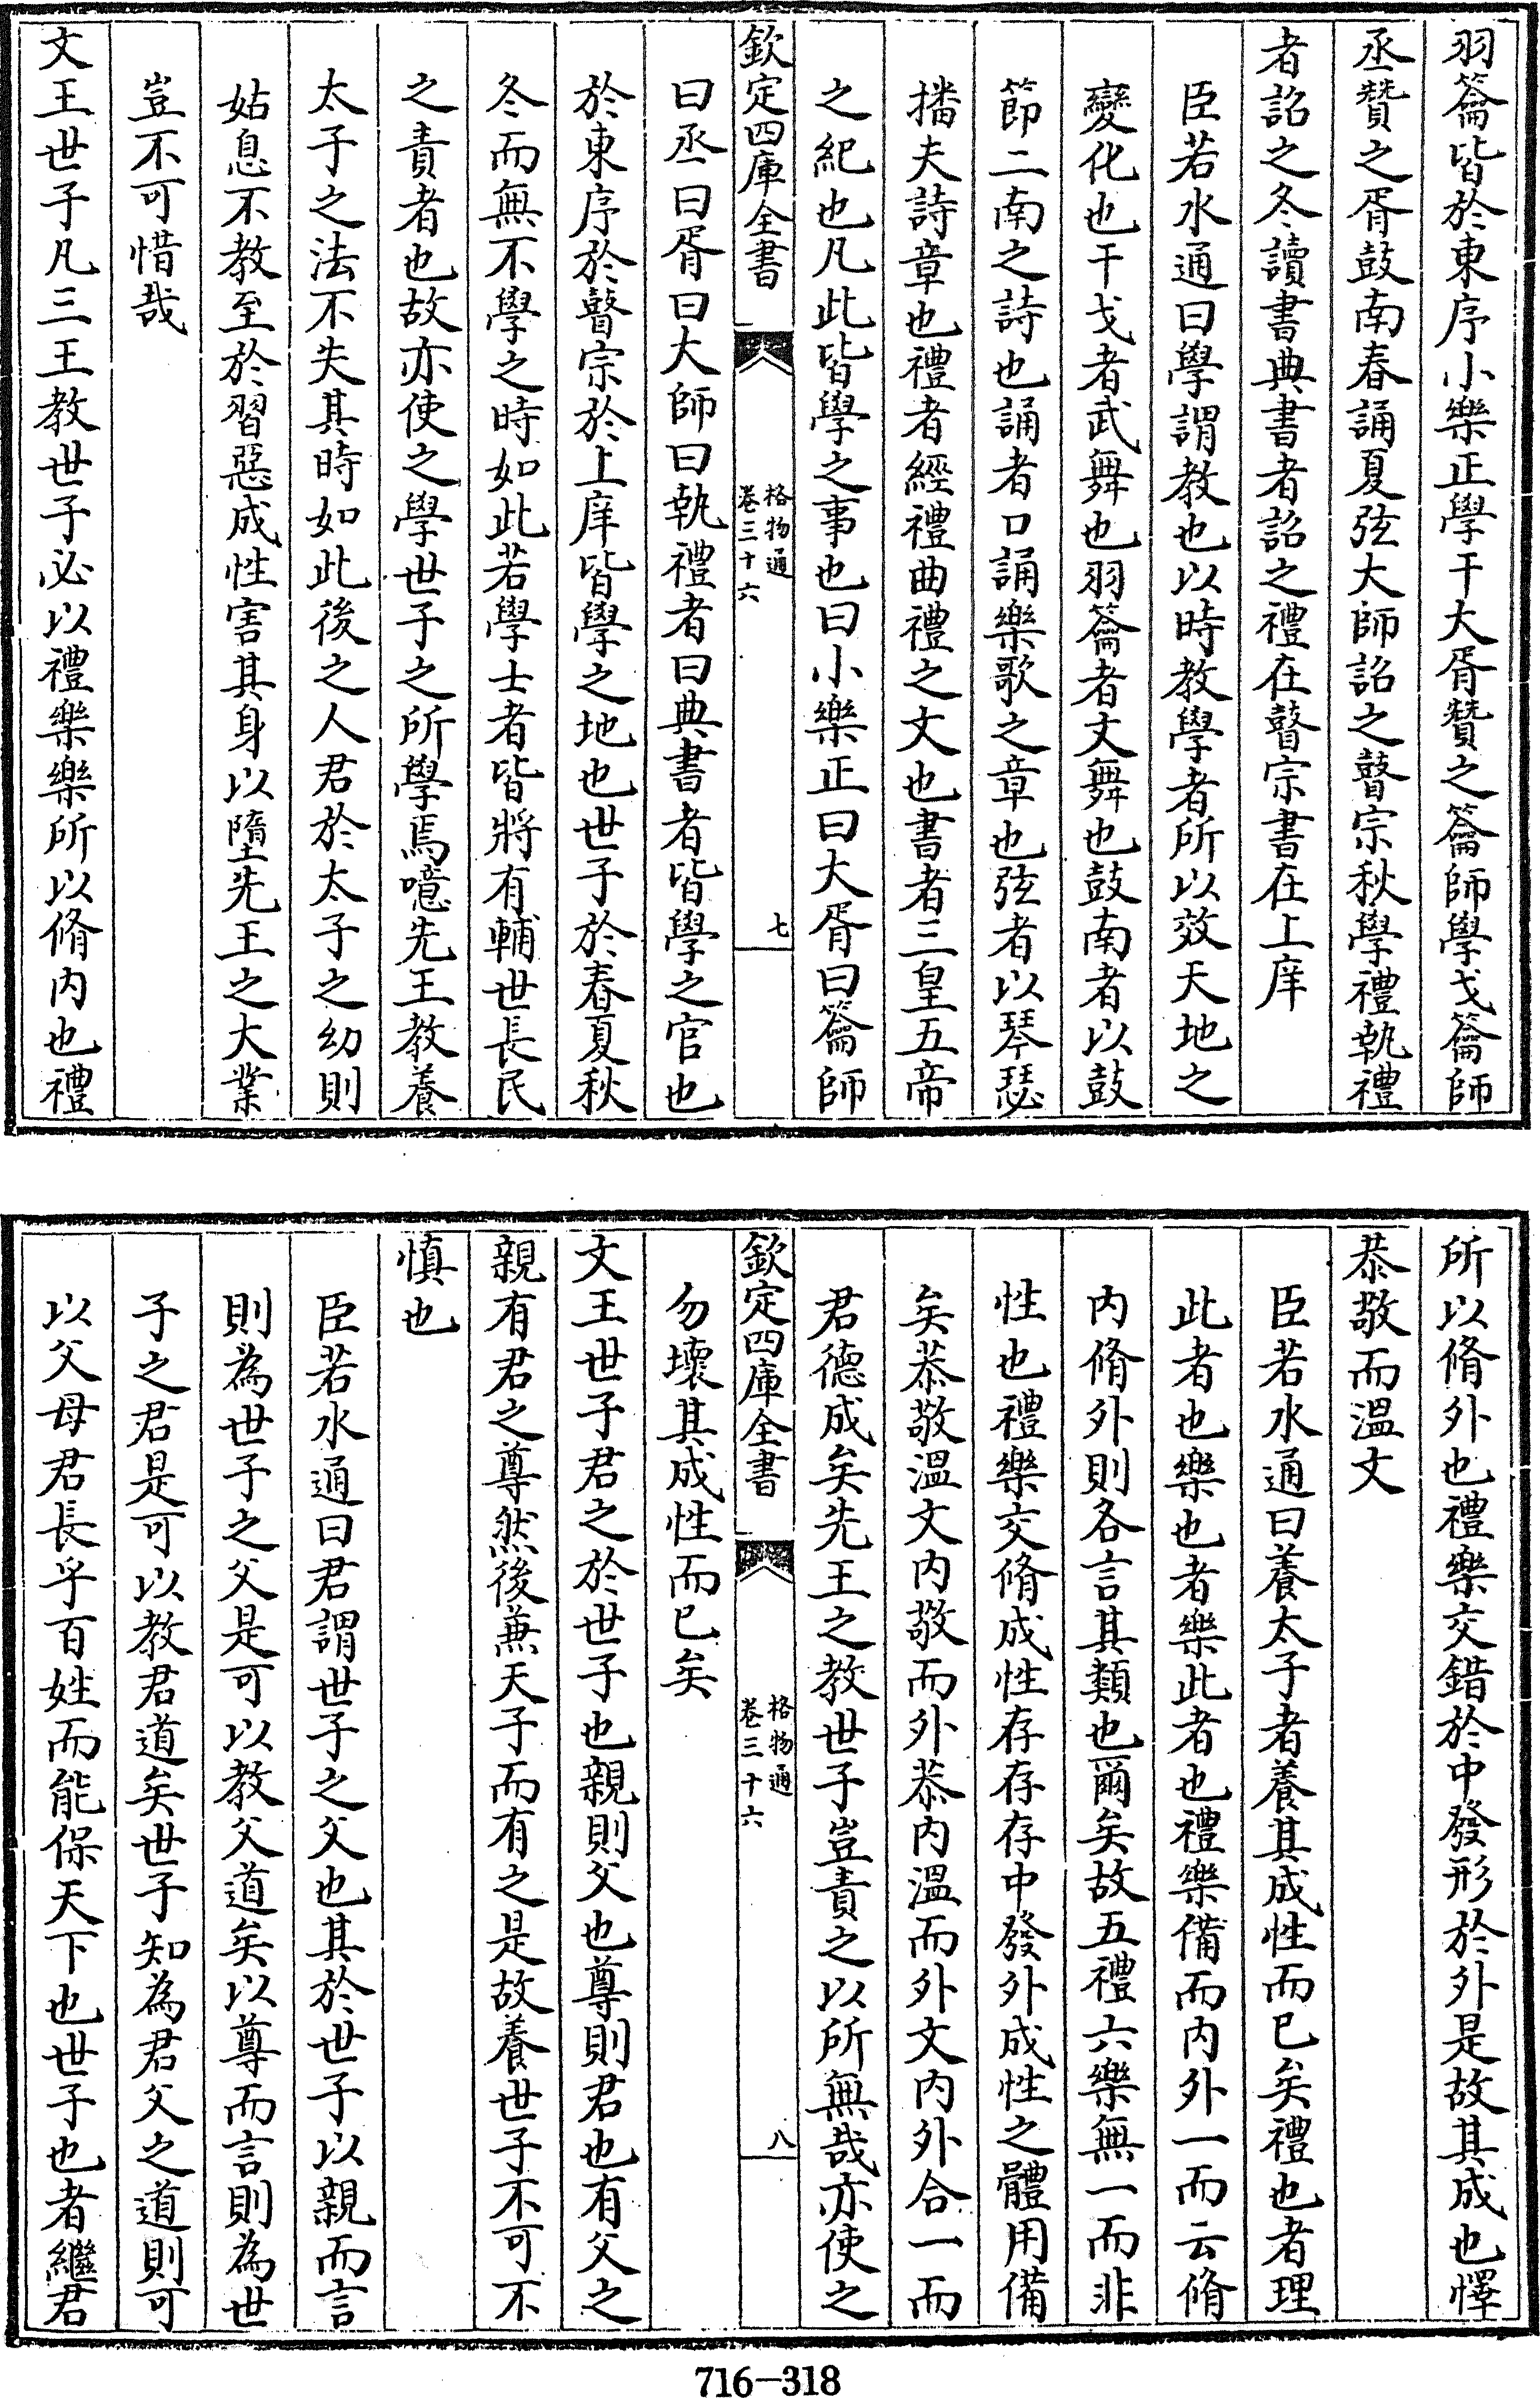 羽籥皆於東序小樂正學干大胥贊之籥師學戈籥師
丞贊之胥鼓南春誦夏弦大師詔之瞽宗秋學禮執禮
者詔之冬讀書典書者詔之禮在瞽宗書在上庠
臣若水通曰學謂教也以時教學者所以效天地之
變化也干戈者武舞也羽籥者文舞也鼓南者以鼓
節二南之詩也誦者口誦樂歌之章也弦者以琴瑟
播夫詩章也禮者經禮曲禮之文也書者三皇五帝
之紀也凡此皆學之事也曰小樂正曰大胥曰籥師
欽定四庫全書
格物通
卷三十六
七
曰丞曰胥曰大師曰執禮者曰典書者皆學之官也
於東序於瞽宗於上庠皆學之地也世子於春夏秋
冬而無不學之時如此若學士者皆將有輔世長民
之責者也故亦使之學世子之所學焉噫先王教養
太子之法不失其時如此後之人君於太子之幼則
姑息不教至於習惡成性害其身以墮先王之大業
豈不可惜哉
文王世子凡三王教世子必以禮樂樂所以脩内也禮
所以脩外也禮樂交錯於中發形於外是故其成也懌
恭敬而溫文
臣若水通曰養太子者養其成性而已矣禮也者理
此者也樂也者樂此者也禮樂備而内外一而云脩
内脩外則各言其類也爾矣故五禮六樂無一而非
性也禮樂交脩成性存存存中發外成性之體用備
矣恭敬溫文内敬而外恭内溫而外文内外合一而
君德成矣先王之教世子豈責之以所無哉亦使之
欽定四庫全書
格物通
卷三十六
八
勿壞其成性而已矣
文王世子君之於世子也親則父也尊則君也有父之
親有君之尊然後兼天子而有之是故養世子不可不
慎也
臣若水通曰君謂世子之父也其於世子以親而言
則為世子之父是可以教父道矣以尊而言則為世
子之君是可以教君道矣世子知為君父之道則可
以父母君長乎百姓而能保天下也世子也者繼君
716-318